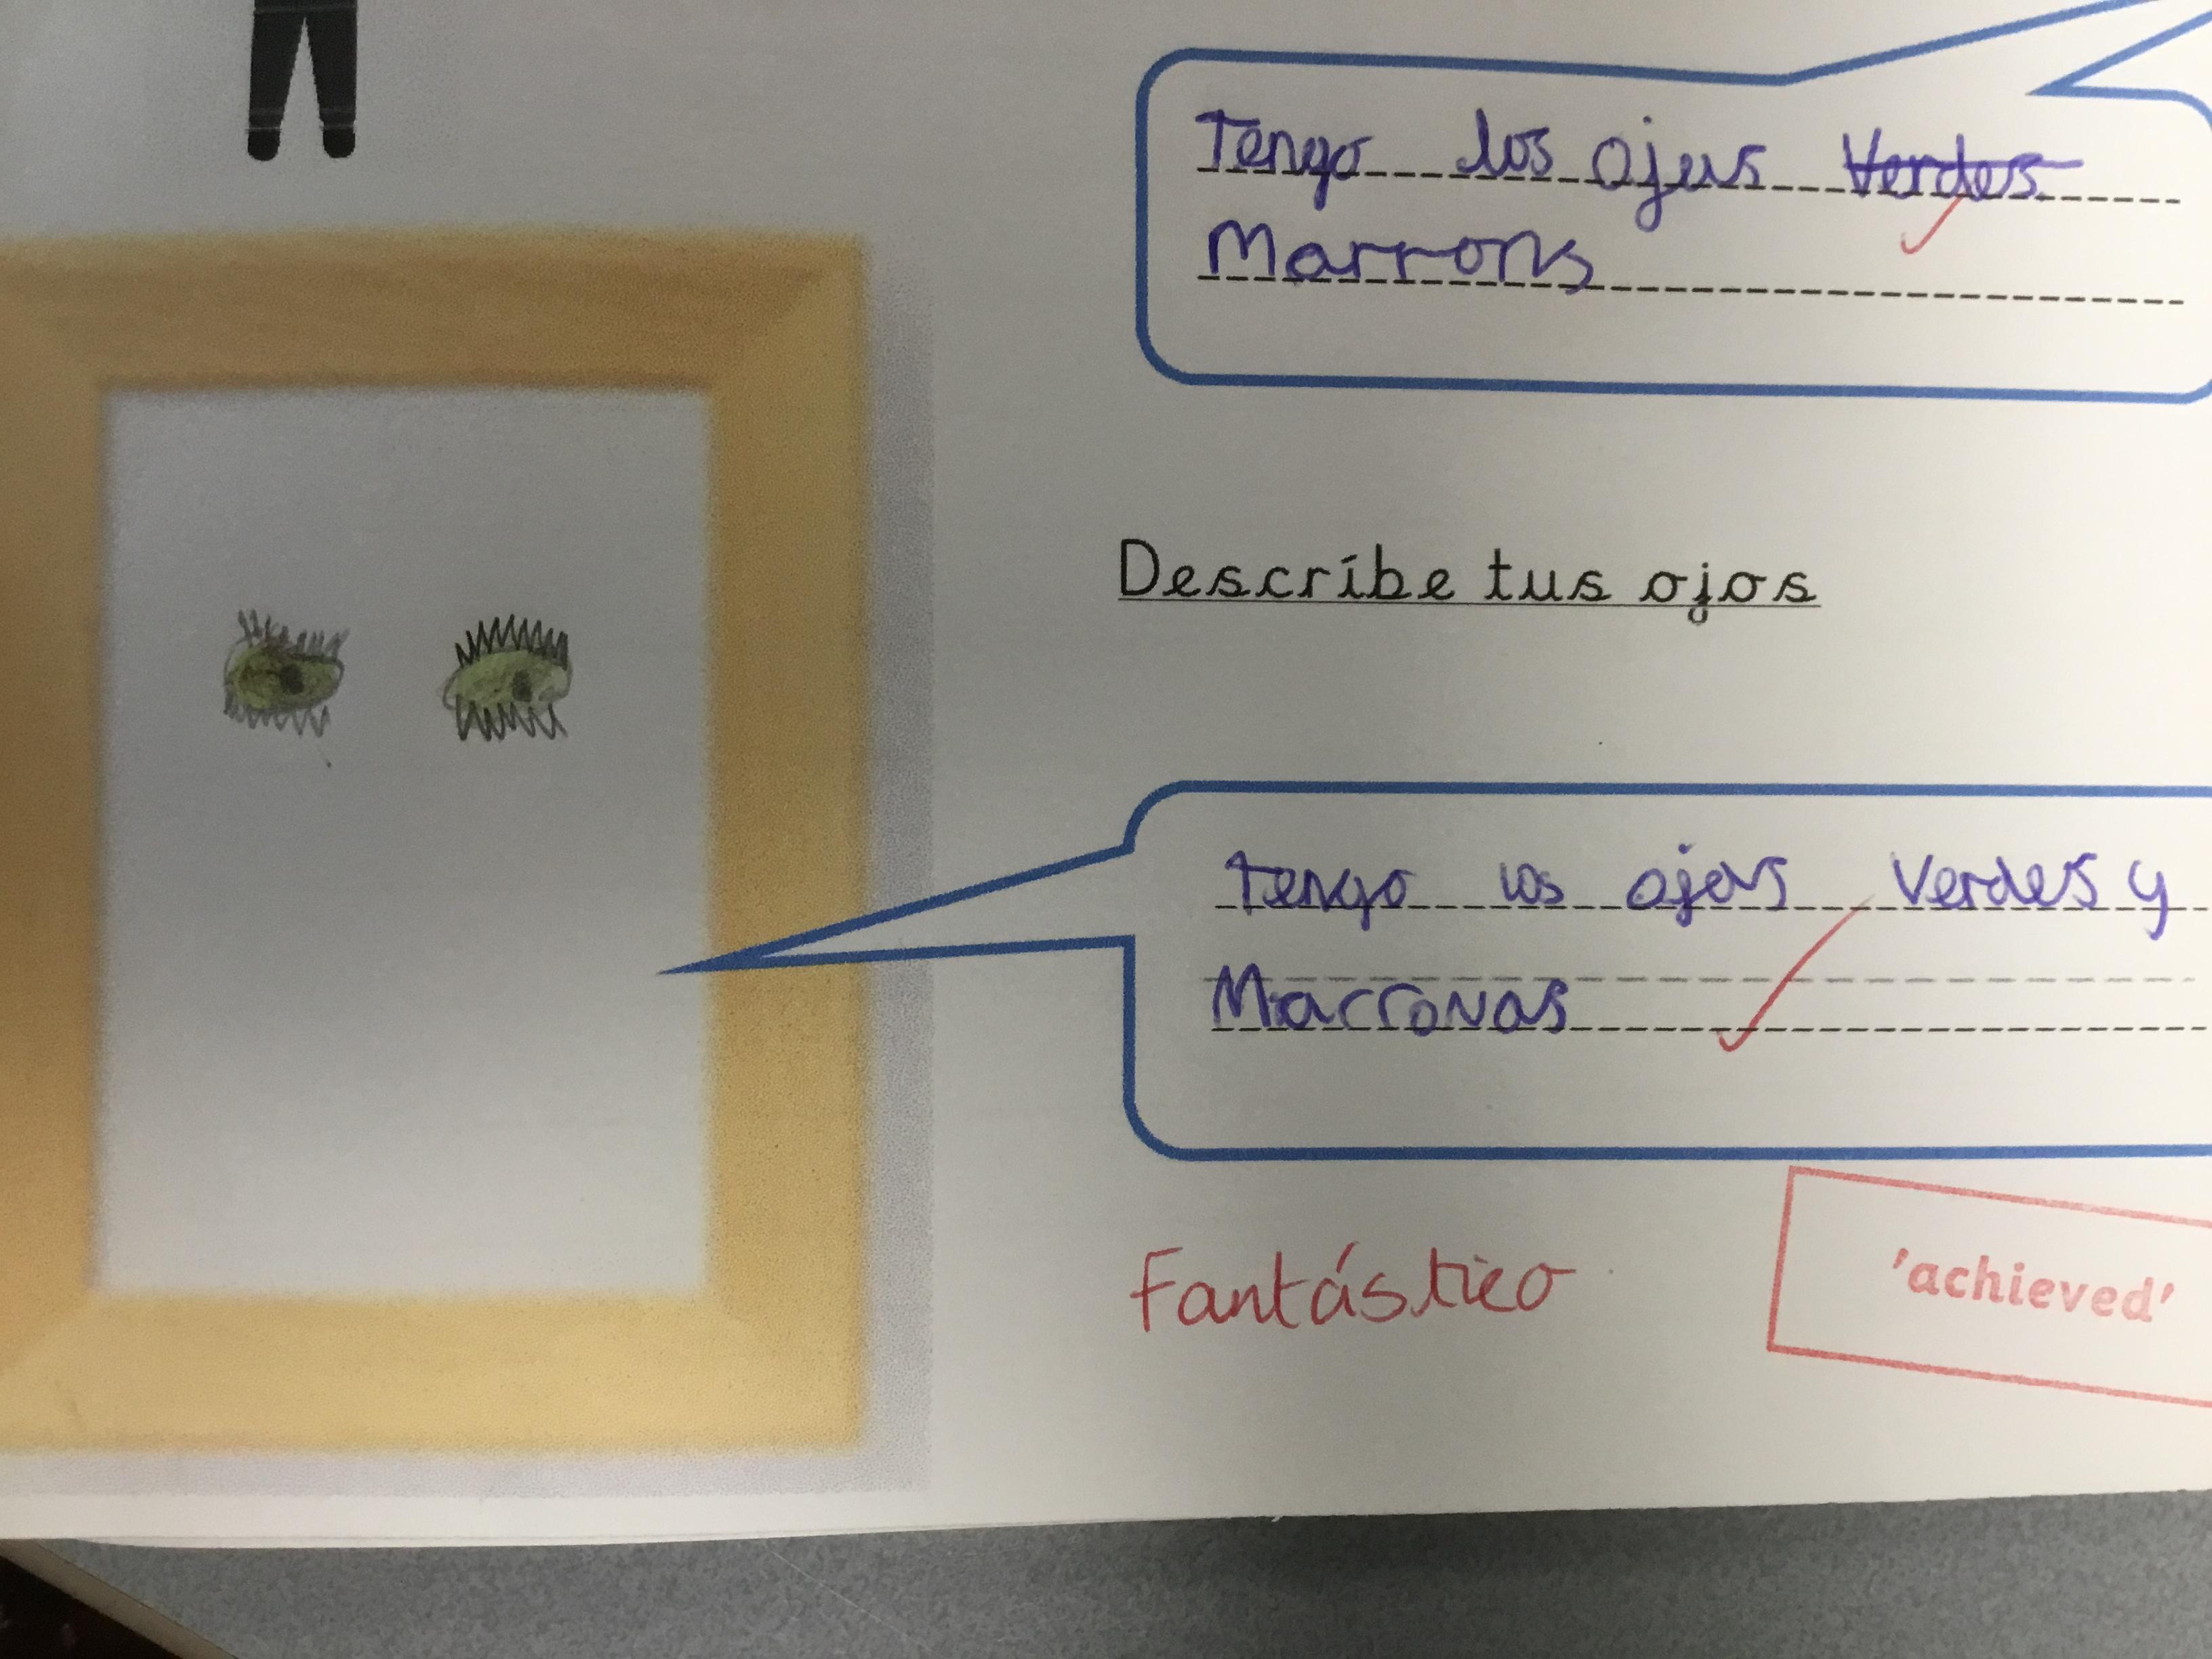 Tengo los ojus Verdes
Marrons
Describe tus ojos
Tengo los ojos Verdes y
Marronas
Fantástico
'achieved'